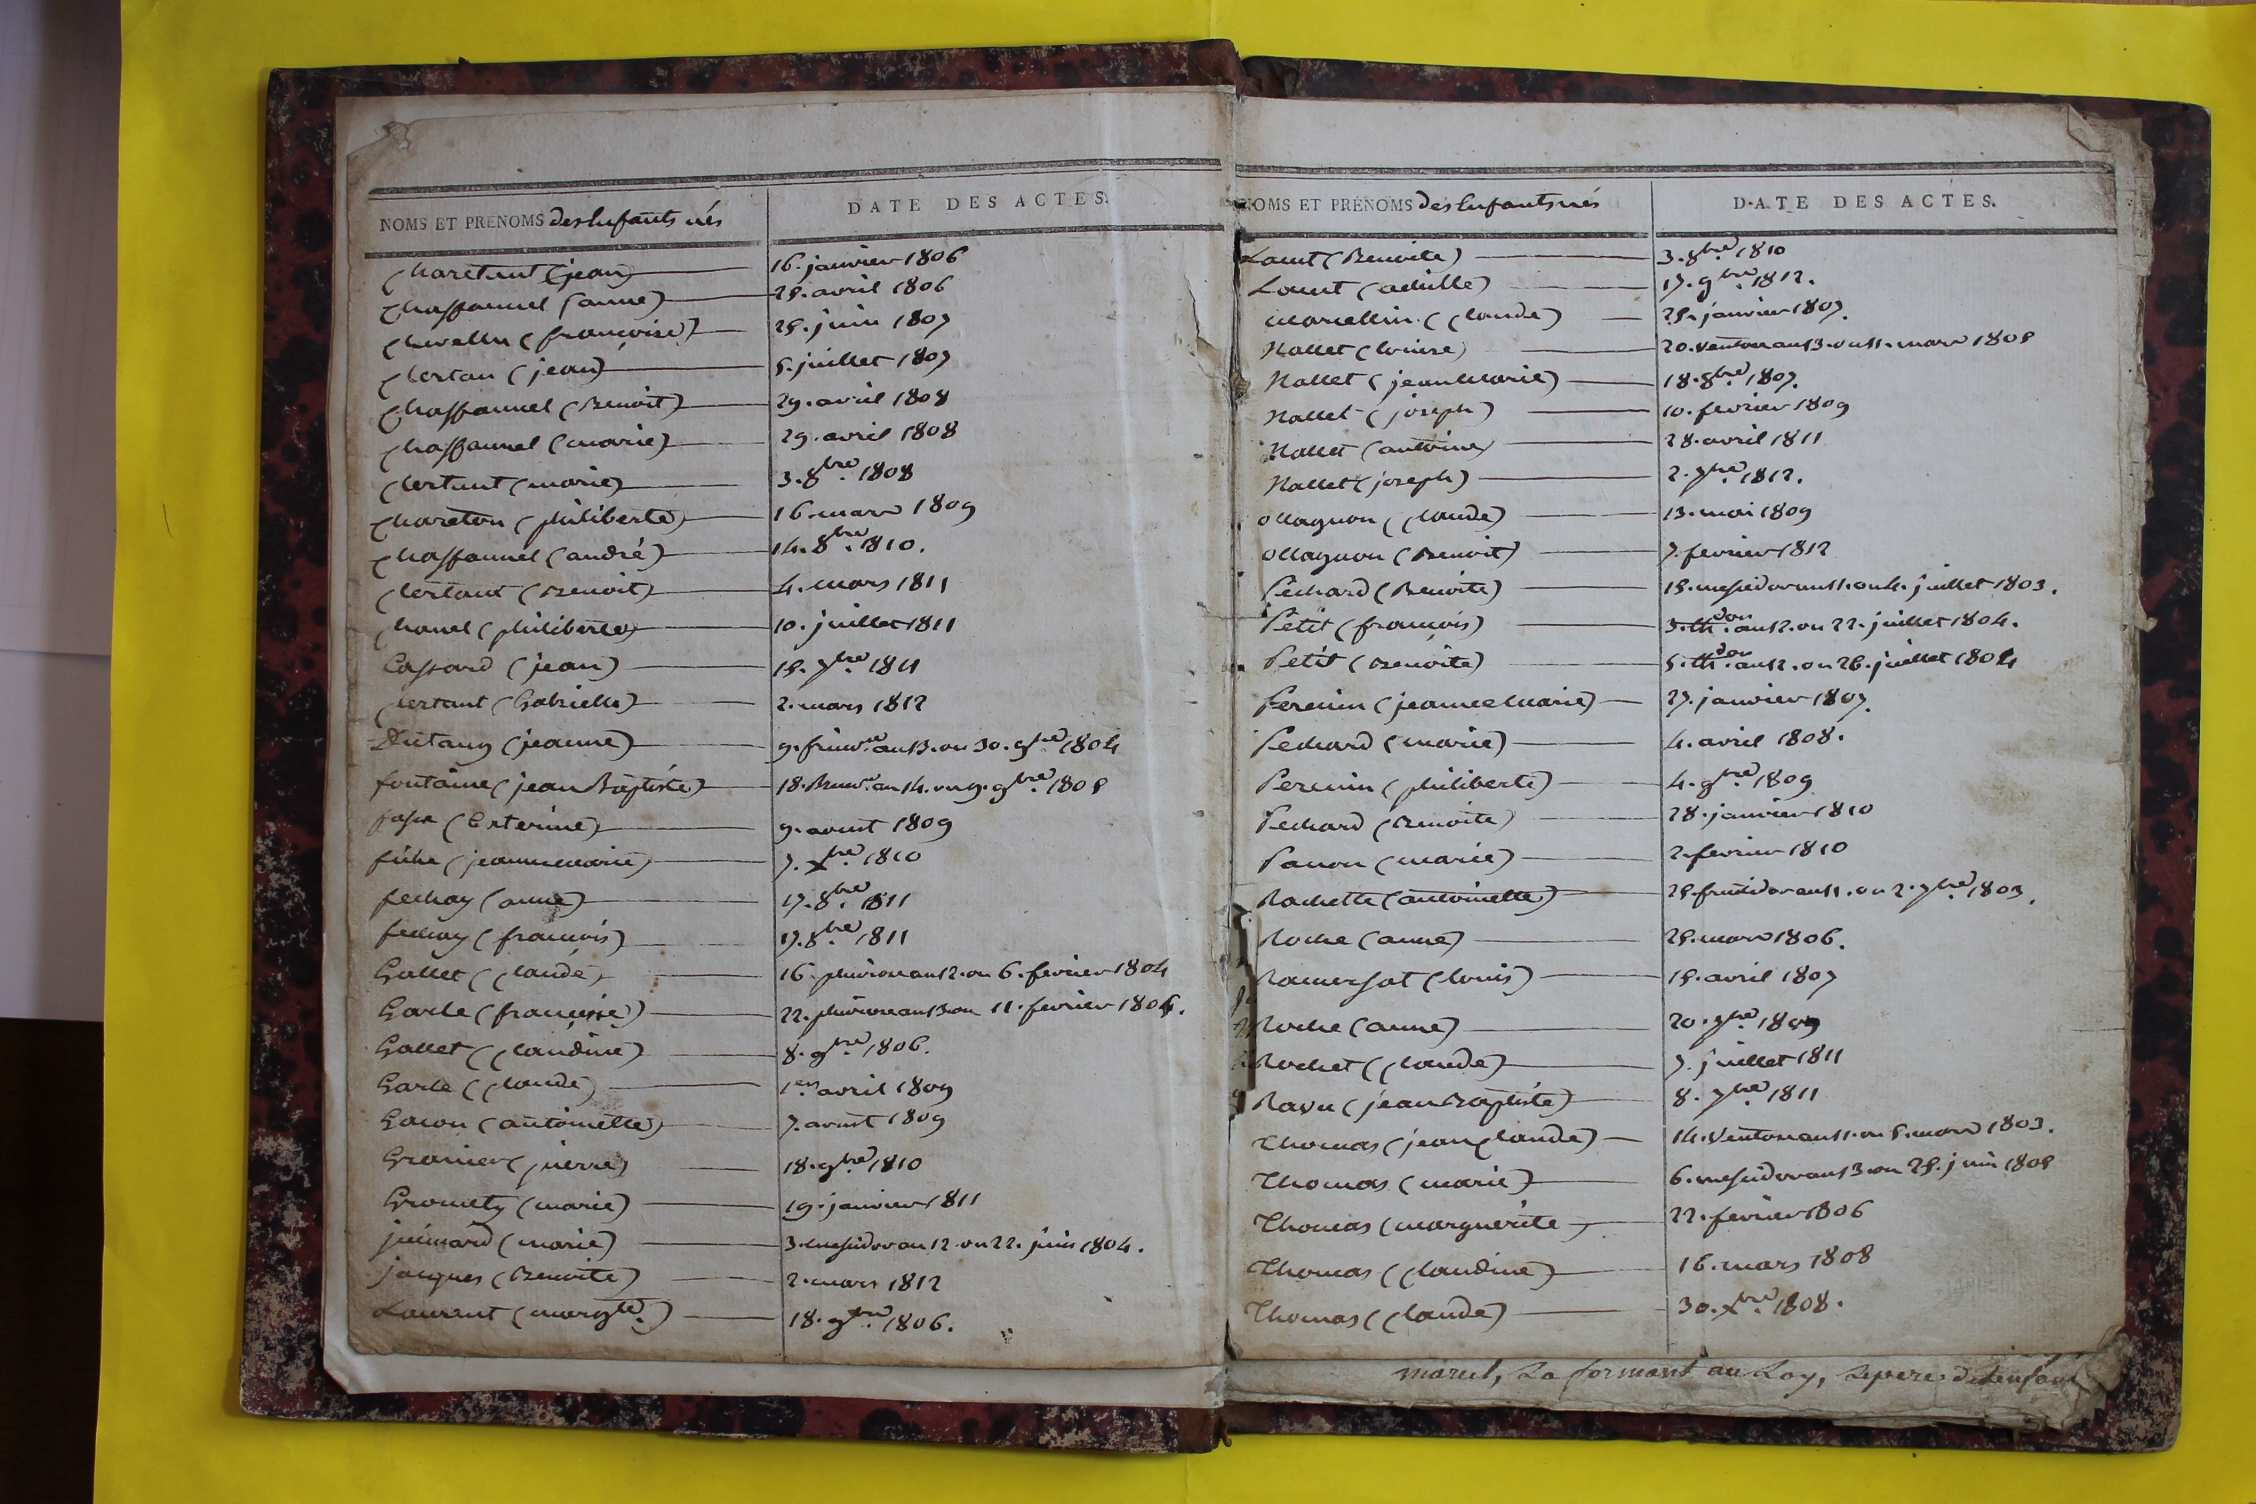 NOMS ET PRÉNOMS des Enfants nés DATE DES ACTES.
Charetant (jean) 16. janvier 1806
Chassaunel (anne) 25. avril 1806
(françoise) 25. juin 1807
Certan (jean) 5. juillet 1807
Chassaunel (Benoit) 29. avril 1808
Chassaunel (marie) 29. avril 1808
Certant (marie) 3. 8bre. 1808
Chareton (philiberte) 16. mars 1809
Chassaunel (andré) 14. 8bre. 1810.
Certant (Benoit) 4. mars 1811
Chanel (philiberte) 10. juillet 1811
Cassard (jean) 15. 7bre. 1811
Certant (Gabrielle) 2. mars 1812
Dutang (jeanne) 9. frimre. an 13. ou 30. 9bre 1804
fontaine (jean Baptiste) 18. Brure. an 14. ou 9. 9bre. 1805
(Exterine) 9. aoust 1809
(jeanne marie) 7. Xbre 1810
fechay (anne) 17. 8bre. 1811
fechay (francois) 17. 8bre. 1811
Gallet (Claude) 16. pluviose an 12. ou 6. fevrier 1804
Garle (francoise) 22. pluviose an 13. ou 11. fevrier
Gallet (Claudine) 8. 9bre. 1806.
Garle (Claude) 1er. avril 1809
Gacon (antoinette) 7. aoust 1809
Granier (pierre) 18. 9bre. 1810
Grometz (marie) 19. janvier 1811
juimard (marie) 3. messidor an 12. ou 22. juin 1804.
jacques (Benoite) 2. mars 1812
Laurent (margte.) 18. 9bre. 1806.
NOMS ET PRÉNOMS des Enfants nés DATE DES ACTES.
Laurt (Benoite) 3. 8bre. 1810
Laurt (achille) 17. 9bre. 1812.
Marcellin (Claude) 25. janvier 1807.
Nallet (louise) 20. ventose an 13. ou 11. mars 1805
Nallet (jean Marie) 18. 8bre. 1807.
Nallet (joseph) 10. fevrier 1809
Nallet (antoine) 28. avril 1811
Nallet (joseph) 2. 7bre. 1812.
Ollagnon (Claude) 13. mai 1809
Ollagnon (Benoit) 7. fevrier 1812
Péchard (Benoite) 15. messidor an 11. ou 4. juillet 1803.
Petit (francois) 3. thdor. an 12. ou 22. juillet 1804.
Petit (Benoite) 5. thdor. an 12. ou 26. juillet 1804
Perenin (jeanne Marie) 27. janvier 1807.
Pechard (marie) 4. avril 1808.
Perenin (philiberte) 4. 9bre. 1809
Pechard (Benoite) 28. janvier 1810
Panon (marie) 2. fevrier 1810
Rochette (antoinette) 25. fructidor an 11. ou 2. 7bre. 1803.
Roche (anne) 25. mars 1806.
Ramersat (louis) 15. avril 1807
Roche (anne) 20. 7bre. 1809
Rochet (Claude) 7. juillet 1811
Ravu (jean Baptiste) 8. 7bre. 1811
Thomas (jean Claude) 14. ventose an 11. ou 5. mars 1803.
Thomas (marie) 6. messidor an 13. ou 25. juin 1805
Thomas (marguerite) 22. fevrier 1806
Thomas (Claudine) 16. mars 1808
Thomas (Claude) 30. Xbre. 1808.
marul, La formant au Loy, le pere de lenfan